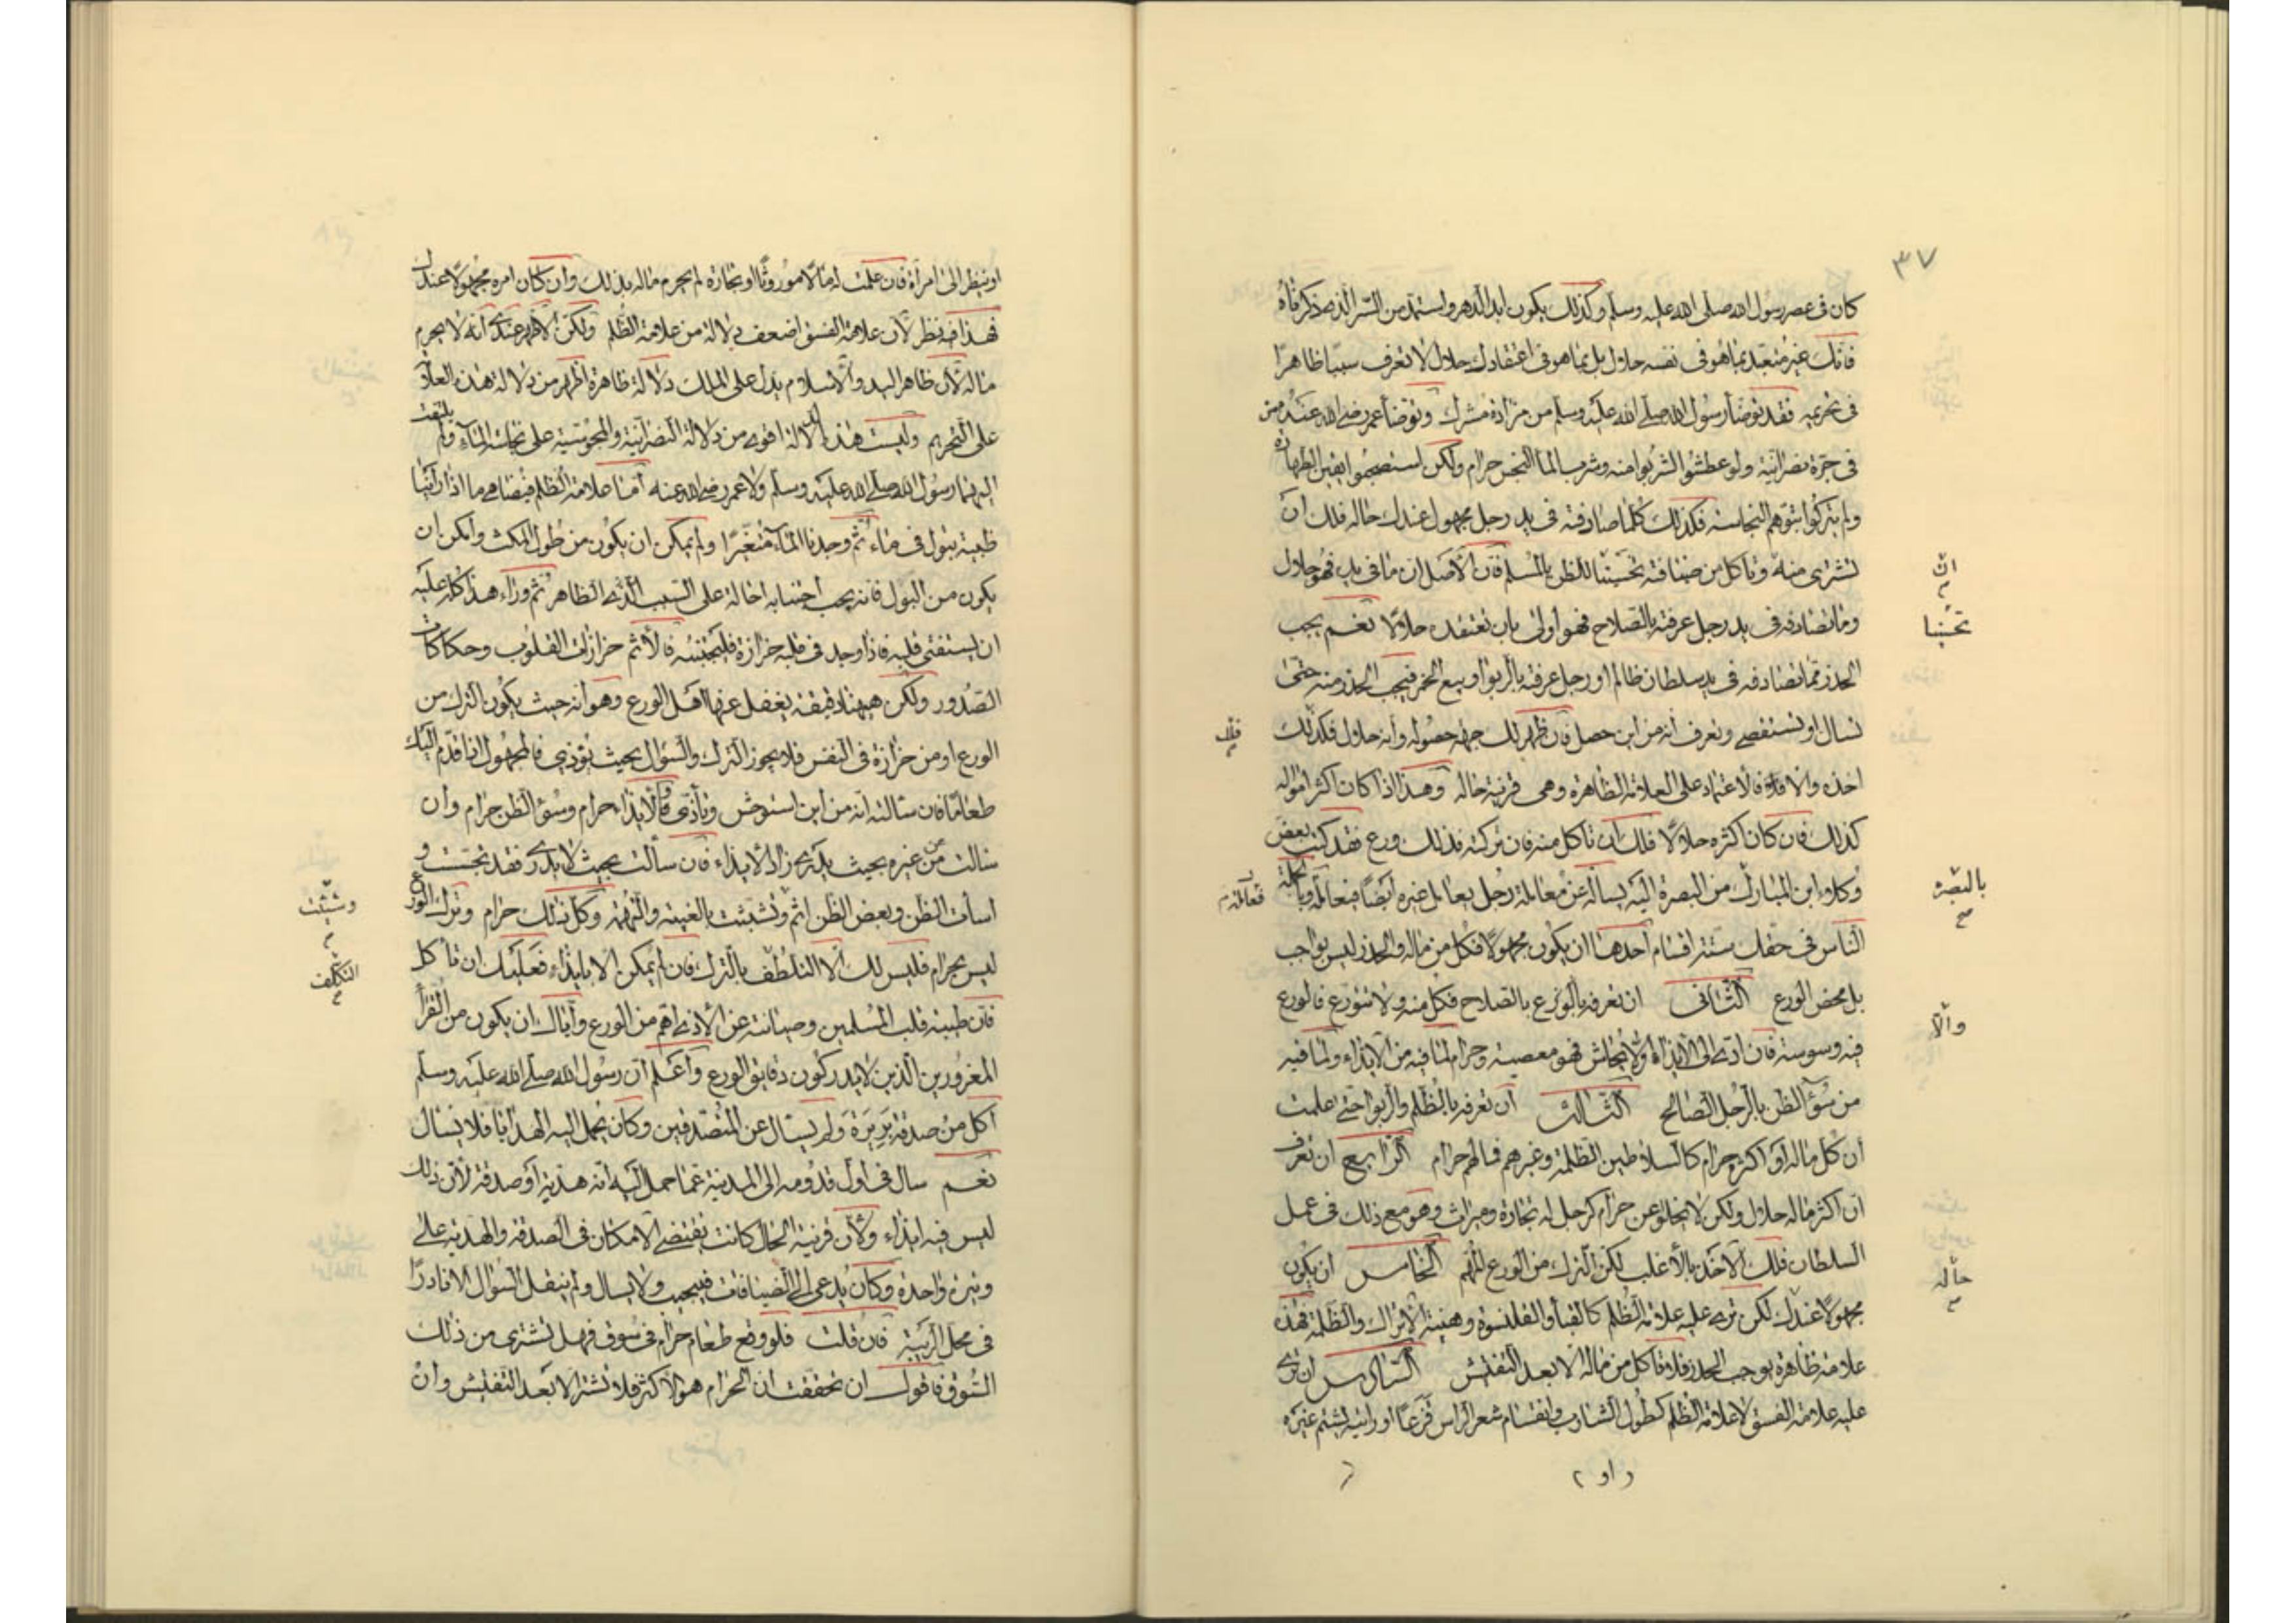 ٣٧
كان فى عصر رسول الله صلى الله عليه وسلم وكذلك يكون ابد الدهر ولستمد من السر الذى ذكرناه
فانك غير متعبد بما هو فى نفسه حلال بل بما هو فى اعتقادك حلال لا تعرف سببا ظاهرا
فى تحريمه فقد توضأ رسول الله صلى الله عليه وسلم من مزادة مشرك وتوضأ عمر رضى الله عنه من
فى جرة نصرانية ولو عطشوا لشربوا منه وشرب الماء النجس حرام ولكن استصحبوا يقين الطهارة
ولم يتركوا بتوهم النجاسة فكذلك كلما صادفته فى يد رجل مجهول عندك حاله فلك ان
تشترى منه وتأكل من ضيافته تحسينا للظن بالمسلم فان الاصل ان ما فى يده فهو حلال
وما تصادفه فى يد رجل عرفته بالصلاح فهو أولى بان تعتقده حلالا نعم يجب
الحذر مما تصادفه فى يد سلطان ظالم او رجل عرفته بالربوا او بيع الخمر فيجب الحذر منه حتى
تسال او تستقصى وتعرف أنه من اين حصل فان ظهر لك جهة حصوله وأنه حلال فكذلك
اخذه والا فلا فالاعتماد على العلامة الظاهرة وهى قرينة حاله وهذا اذا كان اكثر امواله
كذلك فان كان اكثره حلالا فلك ان تاكل منه فان تركته فذلك ورع فقد كتب بعض
وكلاء ابن المبارك من البصرة اليه يسأله عن معاملة رجل يعامل
الناس فى حقك ستة اقسام أحدها ان يكون مجهولا فكل من ماله والحذر ليس بواجب
بل محض الورع الثانى ان تعرفه بالورع بالصلاح فكل منه ولا تتورع فالورع
فيه وسوسة فان ادى الى الايذاء والايحاش فهو معصية وحرام لما فيه من الايذاء ولما فيه
من سوء الظن بالرجل الصالح الثالث ان تعرفه بالظلم والربوا حتى علمت
أن كل ماله أو اكثره حرام كالسلاطين الظلمة وغيرهم فمالهم حرام الرابع ان تعرف
ان اكثر ماله حلال ولكن لا يخلو عن حرام كرجل له تجارة وميراث وهو مع ذلك فى عمل
السلطان فلك الاخذ بالأغلب لكن الترك من الورع المهم الخامس ان يكون
مجهولا عندك لكن ترى عليه علامة الظلم كالقبا والقلنسوة وهيئة الاتراك والظلمة فهذه
علامة ظاهرة يوجب الحذر فلا تأكل من ماله الا بعد التفتيش السادس ان ترى
عليه علامة الفسق لا علامة الظلم كطول الشارب وانقسام شعر الراس قزعا او رأيته يشتم غيره
ان
تحسينا
فلك
بالبصرة
والا
حاله
او ينظر الى امرأة فان علمت له مالا موروثا او تجارة لم يحرم ماله بذلك وان كان امره مجهولا عندك
فهذا فيه نظر لأن علامة الفسق اضعف دلالة من علامة الظلم ولكن الاظهر عندى أنه لا يحرم
ماله لأن ظاهر اليد والاسلام يدل على الملك دلالة ظاهرة اظهر من دلالة هذه العلامة
على التحريم وليست هذه الدلالة اقوى من دلالة النصرانية والمجوسية على نجاسة الماء ولم يلتفت
اليهما رسول الله صلى الله عليه وسلم ولا عمر رضى الله عنه أما علامة الظلم فيضاهى ما اذا رأينا
ظبية تبول فى ماء ثم وجدنا الماء متغيرا ولم يمكن ان يكون من طول المكث وامكن ان
يكون من البول فانه يجب اجتنابه احالة على السبب الذى الظاهر ثم وراء هذا كله عليه
ان يستفتى قلبه فاذا وجد فى قلبه حزازة فليجتنبه فالأثم حزازات القلوب وحكاكات
الصدور ولكن ههنا دقيقة يغفل عنها اهل الورع وهو أنه حيث يكون الترك من
الورع او من حزازة فى النفس فلا يجوز الترك والسؤال بحيث يؤذى فالمجهول اذا قدم اليك
طعاما فان سالته انه من اين استوحش وتأذى فالايذاء حرام وسوء الظن حرام وان
سالت من غيره بحيث يدرى زاد الايذاء فان سألت بحيث لا يدرى فقد تجسست و
اسأت الظن وبعض الظن اثم وتشبثت بالغيبة والتهمة وكل ذلك حرام وترك الورع
ليس بحرام فليس لك الا التلطف بالترك فان لم يمكن الا بايذاء فعليك ان تأكل
فان طيبة قلب المسلمين وصيانته عن الأذى اهم من الورع واياك ان يكون من القرأ
المغرورين الذين لا يدركون دقايق الورع وأعلم ان رسول الله صلى الله عليه وسلم
اكل من صدقة بريرة ولم يسال عن المتصدقين وكان يحمل اليه الهدايا فلا يسال
نعم سال فى اول قدومه الى المدينة عما حمل اليه أنه هدية أو صدقة لأن ذلك
ليس فيه ايذاء ولأن قرينة الحال كانت يقتضى الامكان فى الصدقة والهدية على
وتيرة واحدة وكان يدعى الى الضيافات فيجيب ولا يسال ولم ينقل السؤال الا نادرا
فى محل الريبة فان قلت فلو وقع طعام حرام فى سوق فهل تشترى من ذلك
السوق فاقول ان تحققت ان الحرام هو الاكثر فلا تشتر الا بعد التفتيش وان
التكلف